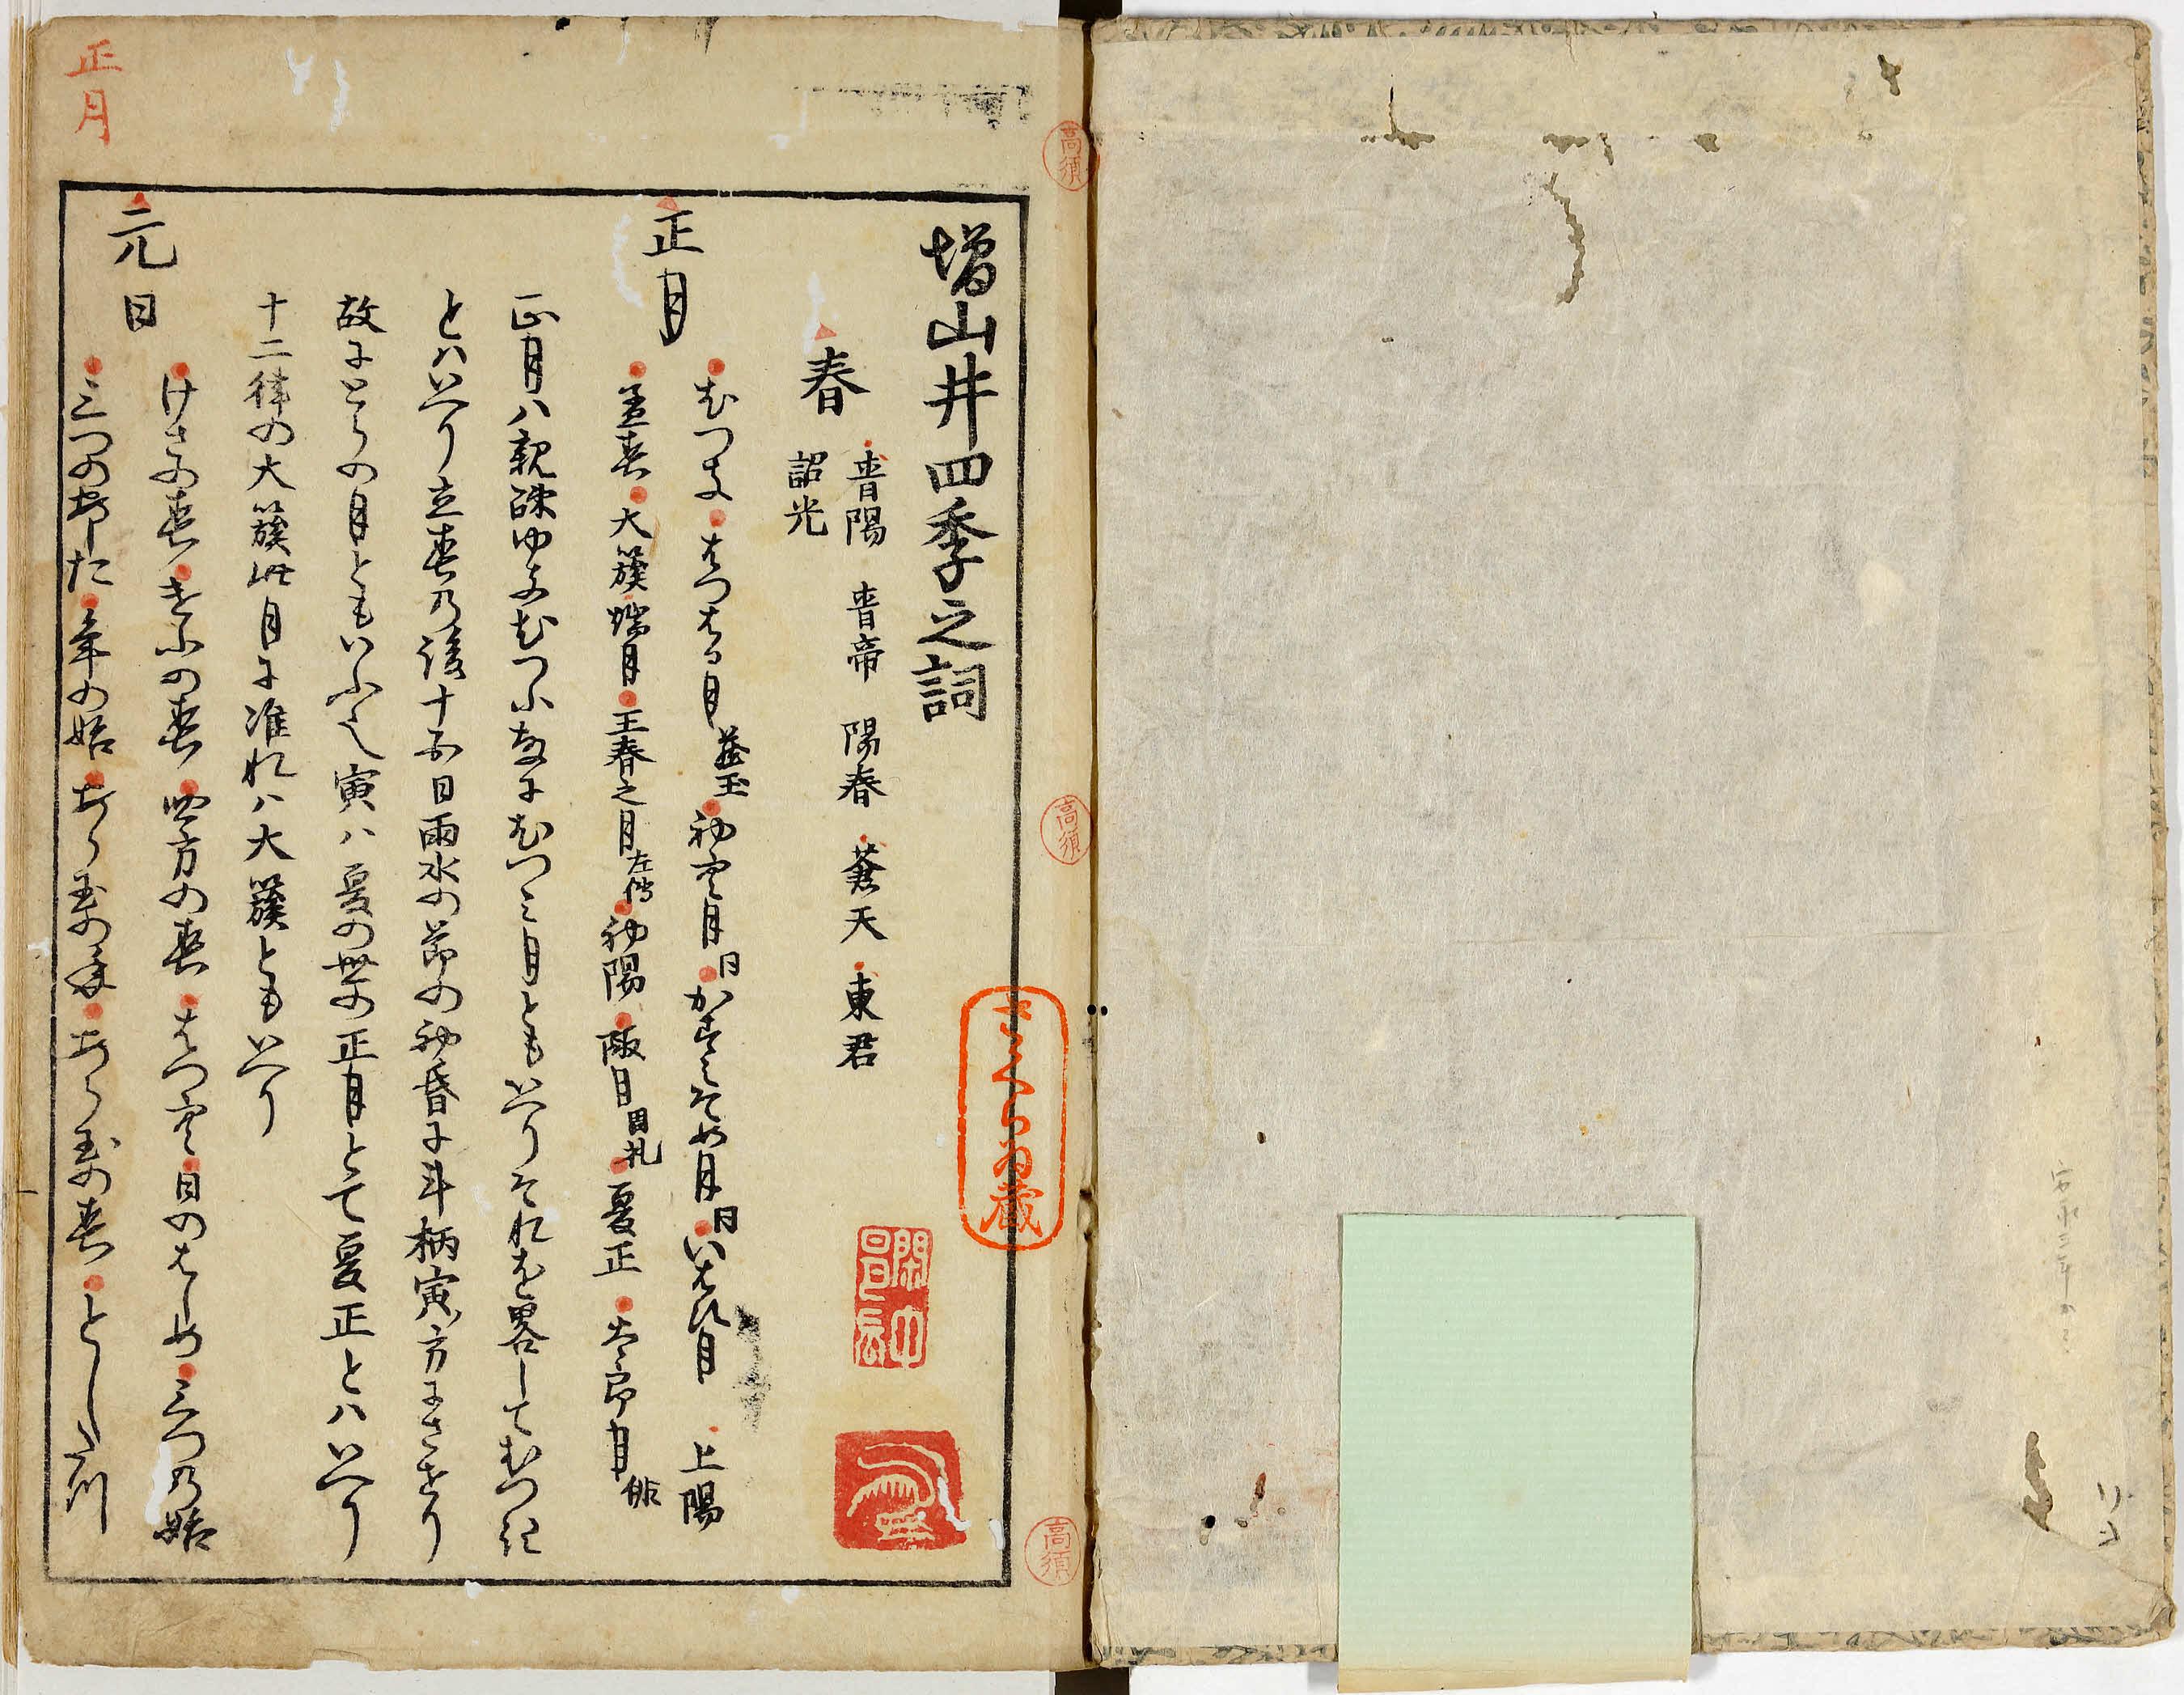 増山井四季之詞
春
青陽 青帝 陽春 蒼天 東君
韶光
正月
むつき はつはる月 蔵玉 初空月 同 かすみそめ月 同 いはひ月 上陽
孟春 大簇 端月 王春之月 左伝 初陽 陬月 夏正 太郎月 俳
正月ハ親疎ゆきむつふ故にむつみ月ともいへりそれを畧してむつき
とハいへり立春乃後十五日雨水の節の初昏に斗柄寅方にさせり
故にとらの月ともいふ也寅ハ夏の世の正月とて夏正とハいへり
十二律の大簇此月に准れハ大簇ともいへり
元日
けさの春 けふの春 四方の春 はつ空 日のはしめ 三つの始
三つのあした 年の始 あら玉の年 あら玉の春 としたつ
正月
高須
高須
高須